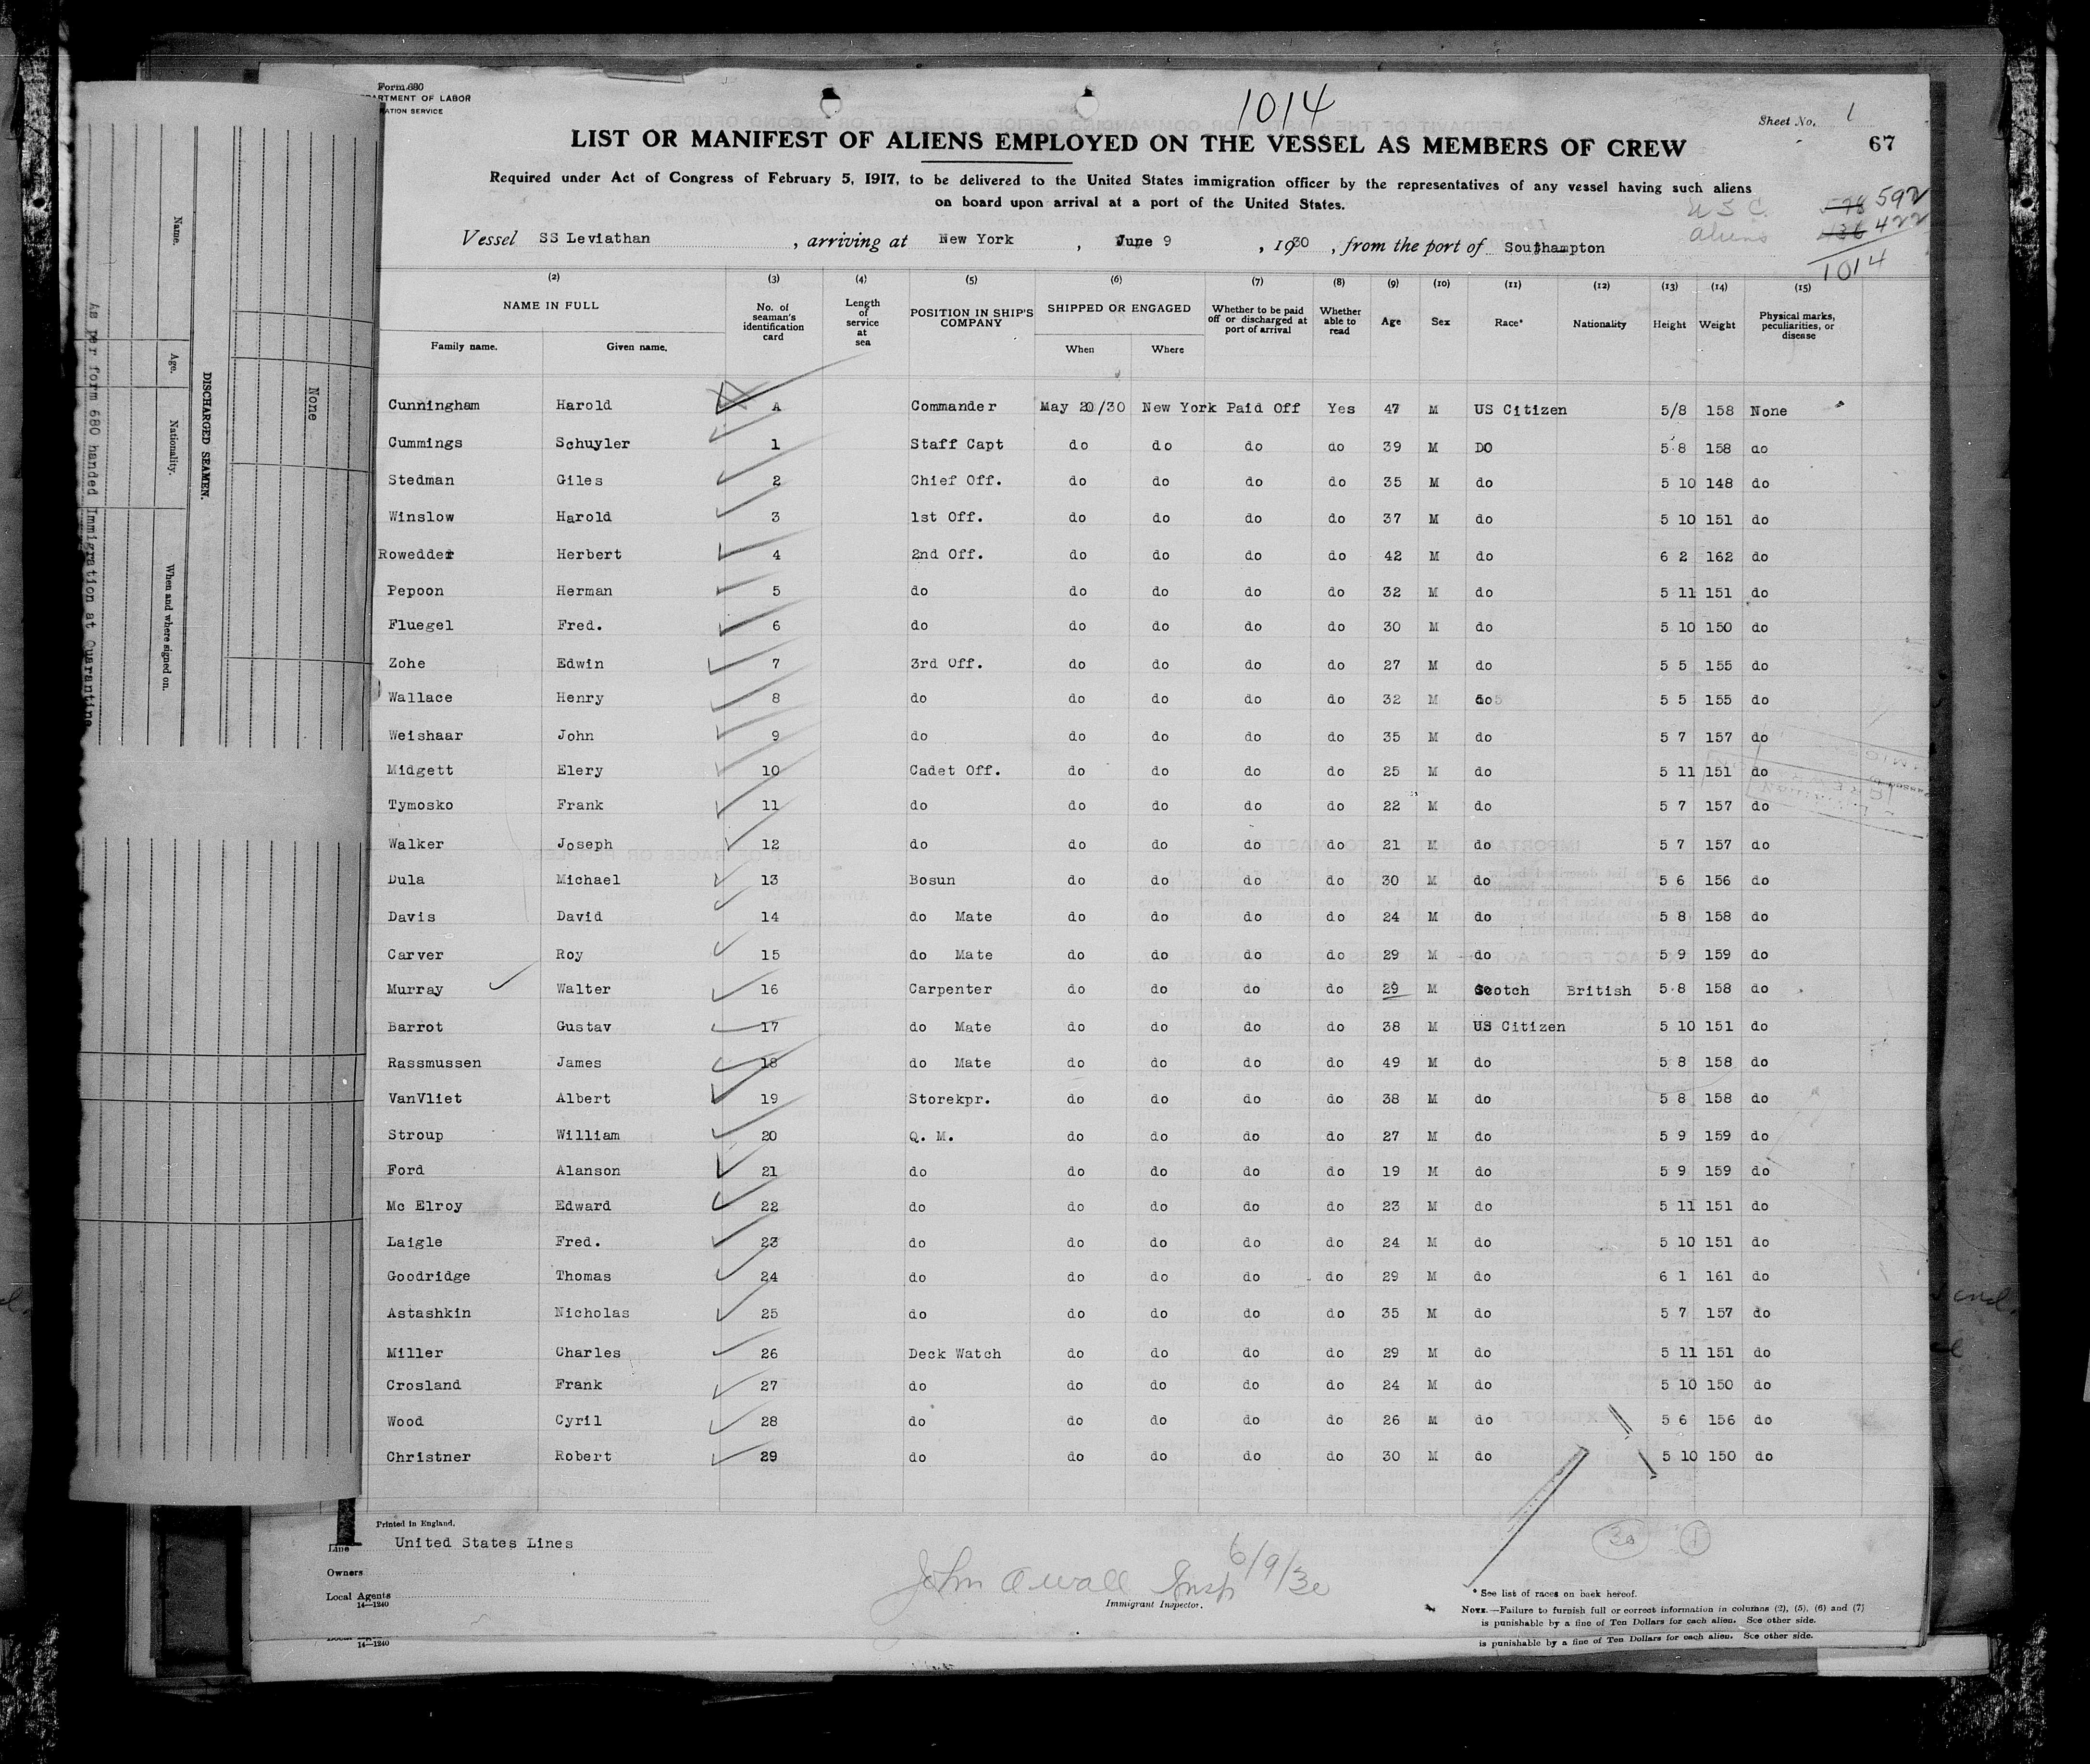 Form 680
DEPARTMENT OF LABOR
IMMIGRATION SERVICE
1014
Sheet No. 1
LIST OR MANIFEST OF ALIENS EMPLOYED ON THE VESSEL AS MEMBERS OF CREW
67
Required under Act of Congress of February 5, 1917, to be delivered to the United States immigration officer by the representatives of any vessel having such aliens
on board upon arrival at a port of the United States.
U S C. 578 592
Aliens 436 422
1014
Vessel SS Leviathan, arriving at New York, June 9, 1930, from the port of Southampton
(2) (3) (4) (5) (6) (7) (8) (9) (10) (11) (12) (13) (14) (15)
NAME IN FULL No. of seaman's identification card Length of service at sea POSITION IN SHIP'S COMPANY SHIPPED OR ENGAGED Whether to be paid off or discharged at port of arrival Whether able to read Age Sex Race* Nationality Height Weight Physical marks, peculiarities, or disease
Family name. Given name. When Where
Cunningham Harold A Commander May 20/30 New York Paid Off Yes 47 M US Citizen 5/8 158 None
Cummings Schuyler 1 Staff Capt do do do do 39 M DO 5 8 158 do
Stedman Giles 2 Chief Off. do do do do 35 M do 5 10 148 do
Winslow Harold 3 1st Off. do do do do 37 M do 5 10 151 do
Rowedder Herbert 4 2nd Off. do do do do 42 M do 6 2 162 do
Pepoon Herman 5 do do do do do 32 M do 5 11 151 do
Fluegel Fred. 6 do do do do do 30 M do 5 10 150 do
Zohe Edwin 7 3rd Off. do do do do 27 M do 5 5 155 do
Wallace Henry 8 do do do do do 32 M do 5 5 155 do
Weishaar John 9 do do do do do 35 M do 5 7 157 do
Midgett Elery 10 Cadet Off. do do do do 25 M do 5 11 151 do
Tymosko Frank 11 do do do do do 22 M do 5 7 157 do
Walker Joseph 12 do do do do do 21 M do 5 7 157 do
Dula Michael 13 Bosun do do do do 30 M do 5 6 156 do
Davis David 14 do Mate do do do do 24 M do 5 8 158 do
Carver Roy 15 do Mate do do do do 29 M do 5 9 159 do
Murray Walter 16 Carpenter do do do do 29 M Scotch British 5 8 158 do
Barrot Gustav 17 do Mate do do do do 38 M US Citizen 5 10 151 do
Rassmussen James 18 do Mate do do do do 49 M do 5 8 158 do
VanVliet Albert 19 Storekpr. do do do do 38 M do 5 8 158 do
Stroup William 20 Q. M. do do do do 27 M do 5 9 159 do
Ford Alanson 21 do do do do do 19 M do 5 9 159 do
Mc Elroy Edward 22 do do do do do 23 M do 5 11 151 do
Laigle Fred. 23 do do do do do 24 M do 5 10 151 do
Goodridge Thomas 24 do do do do do 29 M do 6 1 161 do
Astashkin Nicholas 25 do do do do do 35 M do 5 7 157 do
Miller Charles 26 Deck Watch do do do do 29 M do 5 11 151 do
Crosland Frank 27 do do do do do 24 M do 5 10 150 do
Wood Cyril 28 do do do do do 26 M do 5 6 156 do
Christner Robert 29 do do do do do 30 M do 5 10 150 do
Printed in England.
Line United States Lines
Owners
Local Agents
14—1240
John A Wall Insp 6/9/30
Immigrant Inspector.
30 1
* See list of races on back hereof.
NOTE.—Failure to furnish full or correct information in columns (2), (5), (6) and (7)
is punishable by a fine of Ten Dollars for each alien. See other side.
14—1240
is punishable by a fine of Ten Dollars for each alien. See other side.
DISCHARGED SEAMEN.
Name. Age. Nationality. When and where signed on.
None
As per form 680 handed Immigration at Quarantine